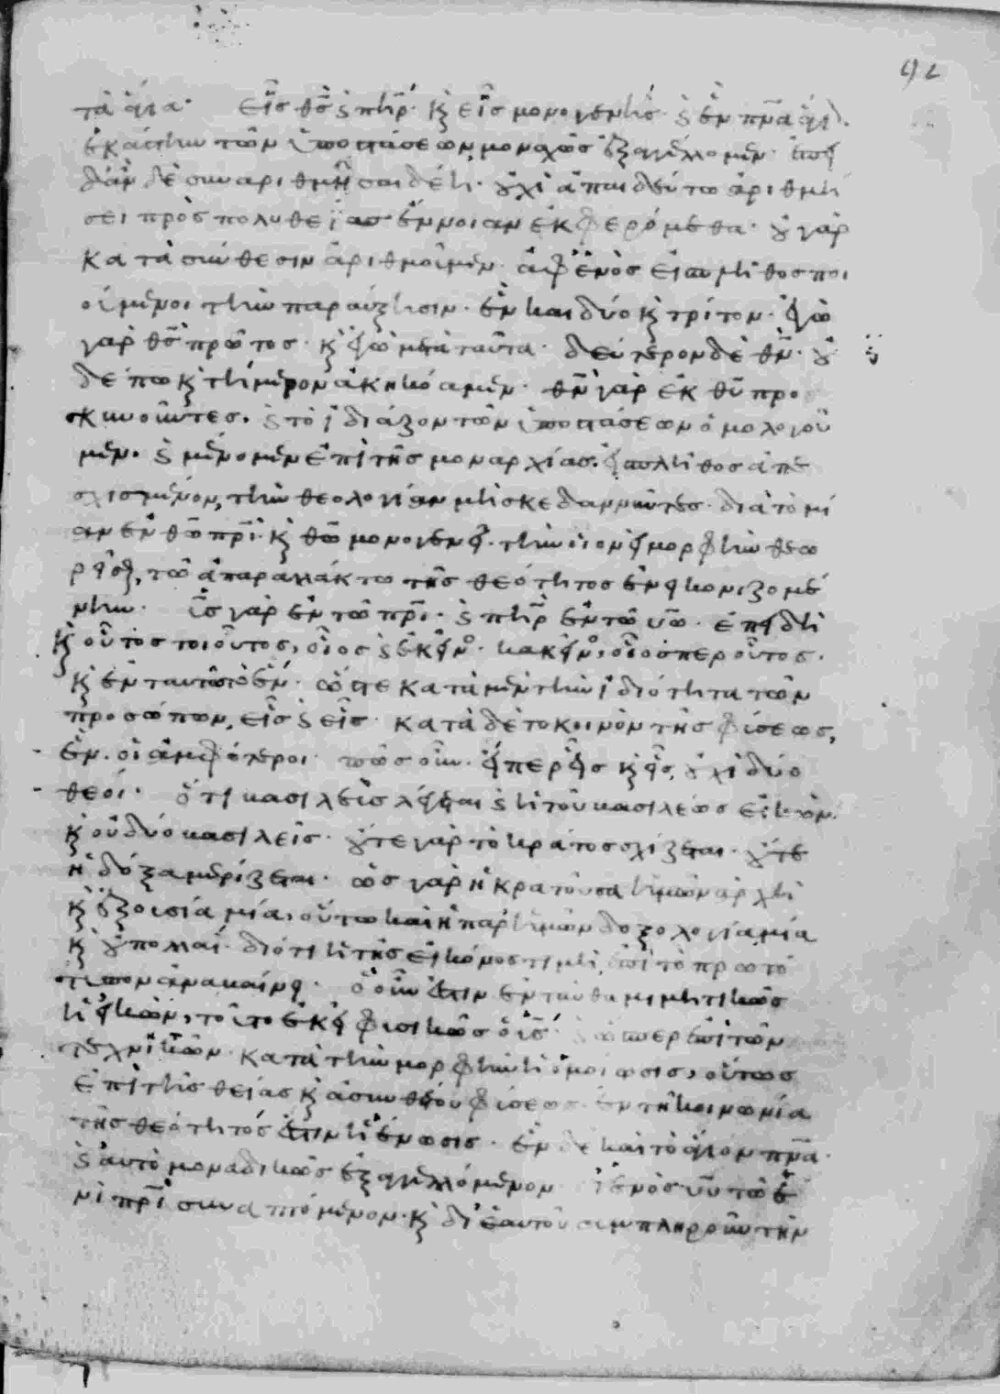 92
τὰ ἅγια· εἷς θς̅ καὶ πηρ̅· καὶ εἷς μονογενὴς· καὶ ἓν πνα̅ ἅγι(ον).
ἑκάστην τῶν ὑποστάσεων, μοναχῶς ἐξαγγέλλομεν· ἐπει
δὰν δὲ συναριθμῆσαι δέη· οὐχὶ ἀπαιδεύτω ἀριθμή
σει πρὸς πολυθεΐας ἔννοιαν ἐκφερόμεθα· οὐ γὰρ
κατὰ σύνθεσιν ἀριθμοῦμεν· ἀφ' ἑνὸς εἰς πλῆθος ποι
ούμενοι τὴν παραύξησιν· ἓν καὶ δύο καὶ τρίτον· ἐγὼ
γὰρ θς̅ πρῶτος· καὶ ἐγὼ μετὰ ταῦτα· δεύτερον δὲ θν̅· οὐ
δέπω καὶ τήμερον ἀκηκόαμεν· θν̅ γὰρ ἐκ θυ̅ προσ
κυνοῦντες· καὶ τὸ ἰδιάζον τῶν ὑποστάσεων ὁμολογοῦ
μεν· καὶ μένομεν ἐπὶ τῆς μοναρχίας· εἰς πλῆθος ἀπε
σχισμένον, τὴν θεολογίαν μὴ σκεδαννύντες· διὰ τὸ μί
αν ἐν θω̅ πρι̅· καὶ θω̅ μονογενεῖ· τὴν οἱονεὶ μορφὴν θεω
ρεῖσθαι, τῶ ἀπαραλλάκτω τῆς θεότητος ἐνεικονιζομέ
νην· υς̅ γὰρ ἐν τῶ πρι̅· καὶ πηρ̅ ἐν τῶ υω̅· ἐπειδὴ
καὶ οὗτος τοιοῦτος, οἷος καὶ ἐκεῖνος· κακεῖνος, οἷόσπερ οὗτος·
καὶ ἐν ταυτῶ τὸ ἕν· ὥστε κατὰ μὲν τὴν ἰδιότητα τῶν
προσώπων, εἷς καὶ εἷς· κατὰ δὲ τὸ κοινὸν τῆς φύσεως,
ἓν οἱ ἀμφότεροι· πῶς οὖν· εἴπερ εἷς καὶ εἷς, οὐχὶ δύο
θεοί· ὅτι βασιλεὺς λέγεται καὶ ἡ τοῦ βασιλέως εἰκών·
καὶ οὐ δύο βασιλεῖς· οὔτε γὰρ τὸ κράτος σχίζεται· οὔτε
ἡ δόξα μερίζεται· ὡς γὰρ ἡ κρατοῦσα ἡμῶν ἀρχὴ
καὶ ἐξουσία μία, οὕτω καὶ ἡ παρ' ἡμῶν δοξολογία, μία
καὶ οὐ πολλαί· διότι ἡ τῆς εἰκόνος τιμὴ, ἐπὶ τὸ πρωτό
τυπον διαβαίνει· ὃ οὖν ἐστιν ἐνταῦθα μιμητικῶς
ἡ εἰκὼν, τοῦτο ἐκεῖ φυσικῶς ὁ υς̅· καὶ ὥσπερ ἐπὶ τῶν
τεχνικῶν· κατὰ τὴν μορφὴν ἡ ὁμοίωσις, οὕτως
ἐπὶ τῆς θείας καὶ ἀσυνθέτου φύσεως· ἐν τῆ κοινωνία
τῆς θεότητός ἐστιν ἡ ἕνωσις· ἓν δὲ καὶ τὸ ἅγιον πνα̅·
καὶ αὐτὸ μοναδικῶς ἐξαγγελλόμενον· δι' ἑνὸς υυ̅ τῶ ἑ
νὶ πρι̅ συναπτόμενον· καὶ δι' ἑαυτοῦ συμπληροῦν τὴν